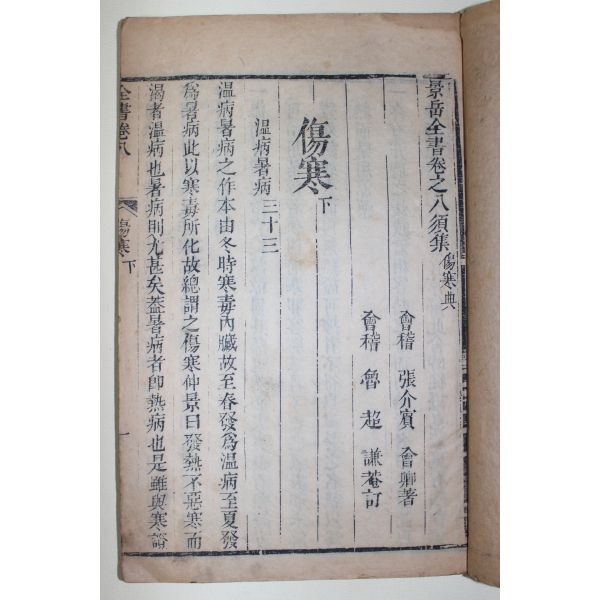 景岳全書卷之八須集 傷寒典
會稽 張介賓 會卿著
會稽 魯超 謙菴訂
傷寒下
溫病暑病三十三
溫病暑病之作本由冬時寒毒內臟故至春發爲溫病至夏發
爲暑病此以寒毒所化故總謂之傷寒仲景曰發熱不惡寒而
渴者溫病也暑病則尤甚矣蓋暑病者卽熱病也是雖與寒證
全書卷八 傷寒下 一